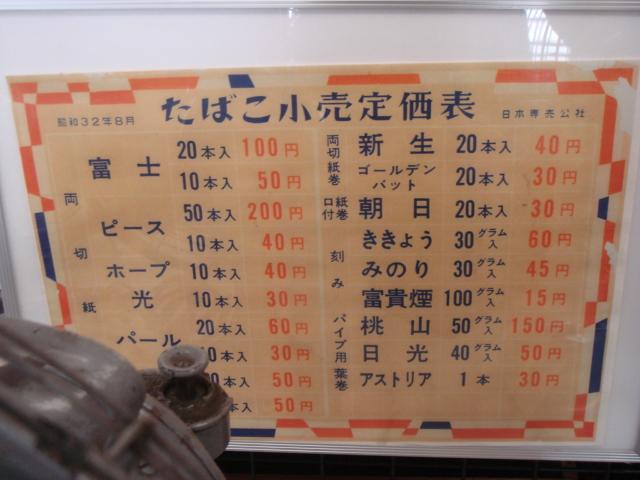 たばこ小売定価表
昭和32年8月
日本専売公社
両切紙
富士 20本入 100円
10本入 50円
ピース 50本入 200円
10本入 40円
ホープ 10本入 40円
光 10本入 30円
パール 20本入 60円
0本入 30円
0本入 50円
本入 50円
両切紙巻
新生 20本入 40円
ゴールデンバット 20本入 30円
口付紙巻
朝日 20本入 30円
刻み
ききょう 30グラム入 60円
みのり 30グラム入 45円
富貴煙 100グラム入 15円
パイプ用
桃山 50グラム入 150円
日光 40グラム入 50円
葉巻
アストリア 1本 30円